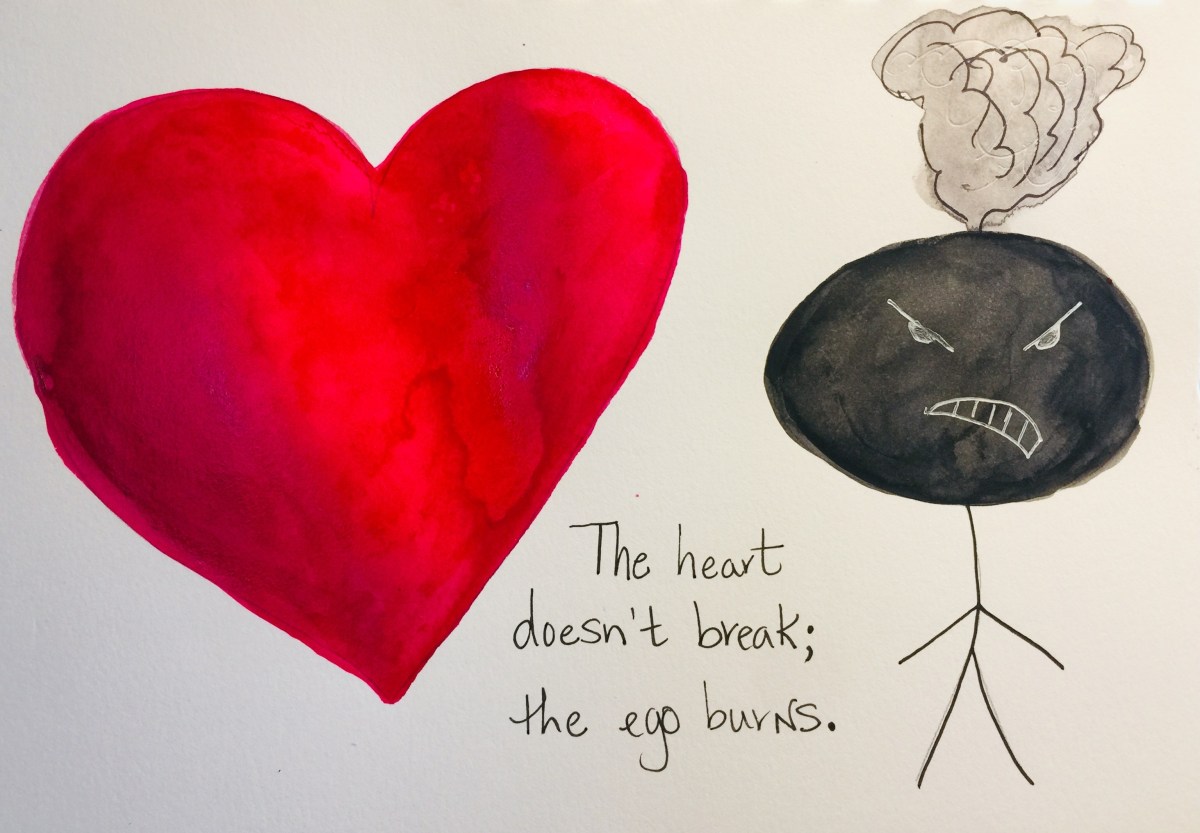 The heart
doesn't break;
the ego burns.